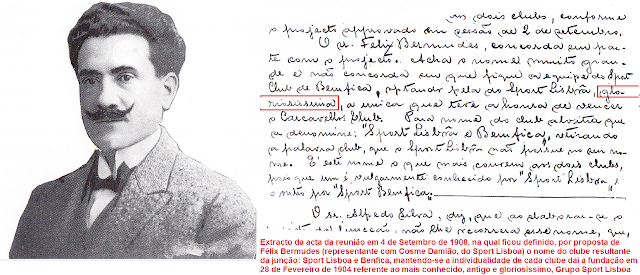 os dois clubs, conforme
o projecto approvado em sessão de 2 de setembro.
O sr. Felix Bermudes, concorda em par-
te com o projecto. Acha o nome muito gran-
de e não concorda em que fique a equipe do Sport
Club de Bemfica, optando pela do Sport Lisbôa, glo-
riosissima, a unica que teve a honra de vencer
o Carcavellos Club. Para nome do club alvitra que
a denomine: "Sport Lisbôa e Bemfica", retirando
a palavra club, que o Sport Lisbôa não possue no seu no-
me. E' este nome o que mais convem aos dois clubs,
pois que um é vulgarmente conhecido por "Sport Lisboa", e
o outro por "Sport Bemfica".
O sr. Alfredo Silva, diz, que ao elaborar-se o
não lhe occorreu esse nome, que,
Extracto da acta da reunião em 4 de Setembro de 1908, na qual ficou definido, por proposta de
Félix Bermudes (representante com Cosme Damião, do Sport Lisboa) o nome do clube resultante
da junção: Sport Lisboa e Benfica, mantendo-se a individualidade de cada clube daí a fundação em
28 de Fevereiro de 1904 referente ao mais conhecido, antigo e gloriosissimo, Grupo Sport Lisboa